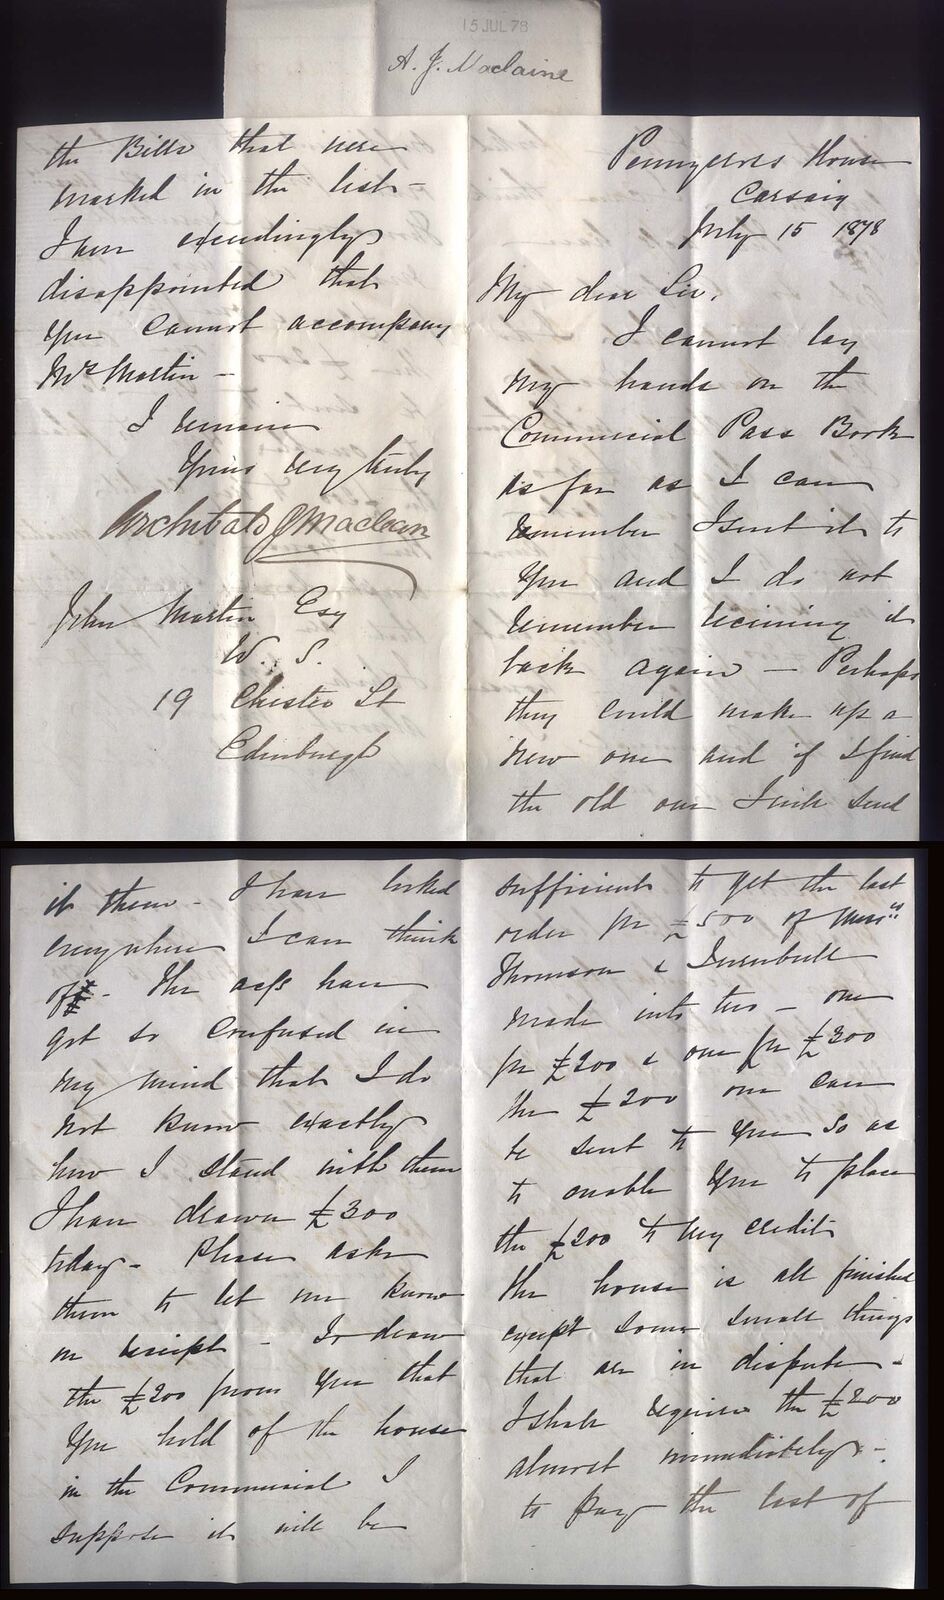 15 JUL 78
A. J. Maclaine
Pennycross House
Carsaig
July 15 1878
My dear Sir,
I cannot lay
my hands on the
Commercial Pass Book
as far as I can
remember I sent it to
you and I do not
remember receiving it
back again — Perhaps
they could make up a
new one and if I find
the old one I will send
it them - I have looked
everywhere I can think
of - The acs have
got so confused in
my mind that I do
not know exactly
how I stand with them
I have drawn £300
today - Please ask
them to let me know
on receipt - To draw
the £200 from you that
you hold of the house
in the Commercial I
suppose it will be
sufficient to get the last
order for £500 of Messrs
Thomson & Turnbull
made into two - one
for £200 & one for £300
the £200 one can
be sent to you so as
to enable you to place
the £200 to my credit
The house is all finished
except some small things
that are in dispute -
I shall require the £200
almost immediately -
to pay the last of
the Bills that were
marked in the list -
I am exceedingly
disappointed that
you cannot accompany
Mrs Martin -
I remain
Yours very truly
Archibald J Maclean
John Martin Esq
W. S.
19 Chester St
Edinburgh